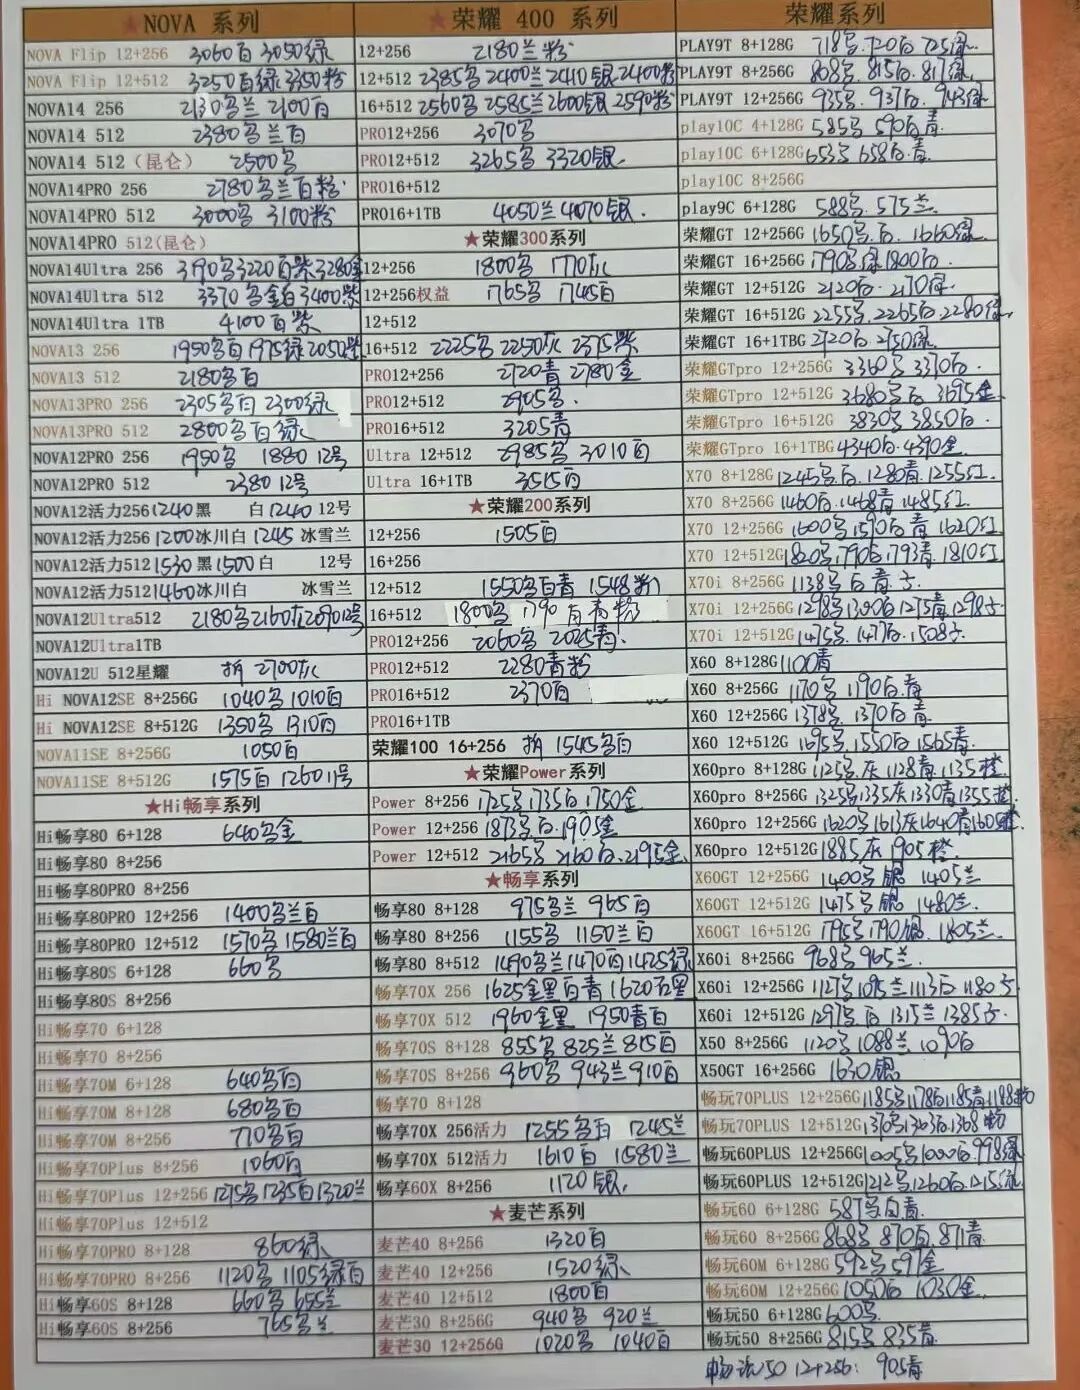 ★NOVA 系列
NOVA Flip 12+256 3060白 3050绿
NOVA Flip 12+512 3250白绿 3350粉
NOVA14 256 2130名兰 2100白
NOVA14 512 2380名兰白
NOVA14 512(昆仑) 2500名
NOVA14PRO 256 2780名兰白粉
NOVA14PRO 512 3000名 3100粉
NOVA14PRO 512(昆仑)
NOVA14Ultra 256 3190名3220白紫3280金
NOVA14Ultra 512 3370名金白3400紫
NOVA14Ultra 1TB 4100白紫
NOVA13 256 1950名白1975绿2050紫
NOVA13 512 2180名白
NOVA13PRO 256 2305名白 2300绿
NOVA13PRO 512 2800名白绿
NOVA12PRO 256 1950名 1880 12号
NOVA12PRO 512 2380 12号
NOVA12活力256 1240黑 白1240 12号
NOVA12活力256 1200冰川白 1245 冰雪兰
NOVA12活力512 1530黑1500白 12号
NOVA12活力512 1460冰川白 冰雪兰
NOVA12Ultra512 2180名2160灰2090 12号
NOVA12Ultra1TB
NOVA12U 512星耀 折 2700灰
Hi NOVA12SE 8+256G 1040名 1010白
Hi NOVA12SE 8+512G 1350名 1310白
NOVA11SE 8+256G 1050白
NOVA11SE 8+512G 1575白 1260 11号
★Hi畅享系列
Hi畅享80 6+128 640名金
Hi畅享80 8+256
Hi畅享80PRO 8+256
Hi畅享80PRO 12+256 1400名兰白
Hi畅享80PRO 12+512 1570名 1580兰白
Hi畅享80S 6+128 660名
Hi畅享80S 8+256
Hi畅享70 6+128
Hi畅享70 8+256
Hi畅享70M 6+128 640名白
Hi畅享70M 8+128 680名白
Hi畅享70M 8+256 770名白
Hi畅享70Plus 8+256 1060白
Hi畅享70Plus 12+256 1275名1235白1320兰
Hi畅享70Plus 12+512
Hi畅享70PRO 8+128 860绿
Hi畅享70PRO 8+256 1120名 1105绿白
Hi畅享60S 8+128 660名 655兰
Hi畅享60S 8+256 765名兰
★荣耀 400 系列
12+256 2180兰粉
12+512 2385名 2400兰 2410银 2400粉
16+512 2560名 2585兰 2600银 2590粉
PRO12+256 3070名
PRO12+512 3265名 3320银
PRO16+512
PRO16+1TB 4050兰 4070银
★荣耀300系列
12+256 1800名 1770灰
12+256权益 1765名 1745白
12+512
16+512 2225名 2250灰 2375紫
PRO12+256 2720青 2780金
PRO12+512 2905名
PRO16+512 3205青
Ultra 12+512 2985名 3010白
Ultra 16+1TB 3515白
★荣耀200系列
12+256 1505白
16+256
12+512 1550名白青 1548粉
16+512 1800名 1790白青粉
PRO12+256 2060名 2025青
PRO12+512 2280青粉
PRO16+512 2370白
PRO16+1TB
荣耀100 16+256 折 1545名白
★荣耀Power系列
Power 8+256 1725名1735白1750金
Power 12+256 1873名白1905金
Power 12+512 2165名 2160白 2195金
★畅享系列
畅享80 8+128 975名兰 965白
畅享80 8+256 1155名 1150兰白
畅享80 8+512 1490名兰1470白1425绿
畅享70X 256 1625金黑白青 1620石墨
畅享70X 512 1960金黑 1950青白
畅享70S 8+128 855名 825兰 815白
畅享70S 8+256 960名 943兰910白
畅享70 8+128
畅享70X 256活力 1255名白 1245兰
畅享70X 512活力 1610白 1580兰
畅享60X 8+256 1120银
★麦芒系列
麦芒40 8+256 1320白
麦芒40 12+256 1520绿
麦芒40 12+512 1800白
麦芒30 8+256G 940名 920兰
麦芒30 12+256G 1020名 1040白
荣耀系列
PLAY9T 8+128G 718名 720白 725绿
PLAY9T 8+256G 808名 815白 817绿
PLAY9T 12+256G 935名 937白 943绿
play10C 4+128G 585名 590白青
play10C 6+128G 653名 658白青
play10C 8+256G
play9C 6+128G 588名 575兰
荣耀GT 12+256G 1650名白 1660绿
荣耀GT 16+256G 1790名绿1800白
荣耀GT 12+512G 2120白 2170绿
荣耀GT 16+512G 2255名 2265白 2280绿
荣耀GT 16+1TBG 2720白 2750绿
荣耀GTpro 12+256G 3360名 3370白
荣耀GTpro 12+512G 3680名白 3695金
荣耀GTpro 16+512G 3830名 3850白
荣耀GTpro 16+1TBG 4340白 4390金
X70 8+128G 1245名白 1280青 1255红
X70 8+256G 1460白 1468青 1485红
X70 12+256G 1600名1590白青 1620红
X70 12+512G 1820名1790白1793青 1810红
X70i 8+256G 1138名白青子
X70i 12+256G 1298名1300白1275青1298子
X70i 12+512G 1475名 1477白 1508子
X60 8+128G 1100青
X60 8+256G 1170名 1190白青
X60 12+256G 1378名 1370白
X60 12+512G 1695名 1550白 1565青
X60pro 8+128G 1125名灰 1128青 1135橙
X60pro 8+256G 1325名1335灰1330青1355橙
X60pro 12+256G 1620名1613灰1640青1605橙
X60pro 12+512G 1885灰 1905橙
X60GT 12+256G 1400名银 1405兰
X60GT 12+512G 1475名银 1480兰
X60GT 16+512G 1795名1790银 1805兰
X60i 8+256G 968名965兰
X60i 12+256G 1127名1095兰1113白1180子
X60i 12+512G 1297名白 1315兰1385子
X50 8+256G 1120名1088兰1090白
X50GT 16+256G 1630银
畅玩70PLUS 12+256G 1185名1178白1185青1188粉
畅玩70PLUS 12+512G
畅玩60PLUS 12+256G 1005名1000白998绿
畅玩60PLUS 12+512G 1212名1260白1215绿
畅玩60 6+128G 587名白青
畅玩60 8+256G 868名 870白 871青
畅玩60M 6+128G 592名 597金
畅玩60M 12+256G 1050白 1030金
畅玩50 6+128G 600名
畅玩50 8+256G 815名 835青
畅玩50 12+256: 905青